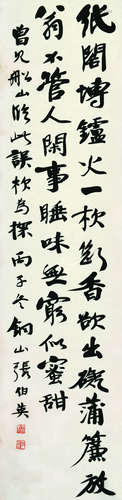 紙閣塼鑪火一杴斷香欲出礙蒲簾放
翁不管人閒事睡味無窮似蜜甜
曾見船山臨此誤杴為探丙子冬銅山張伯英